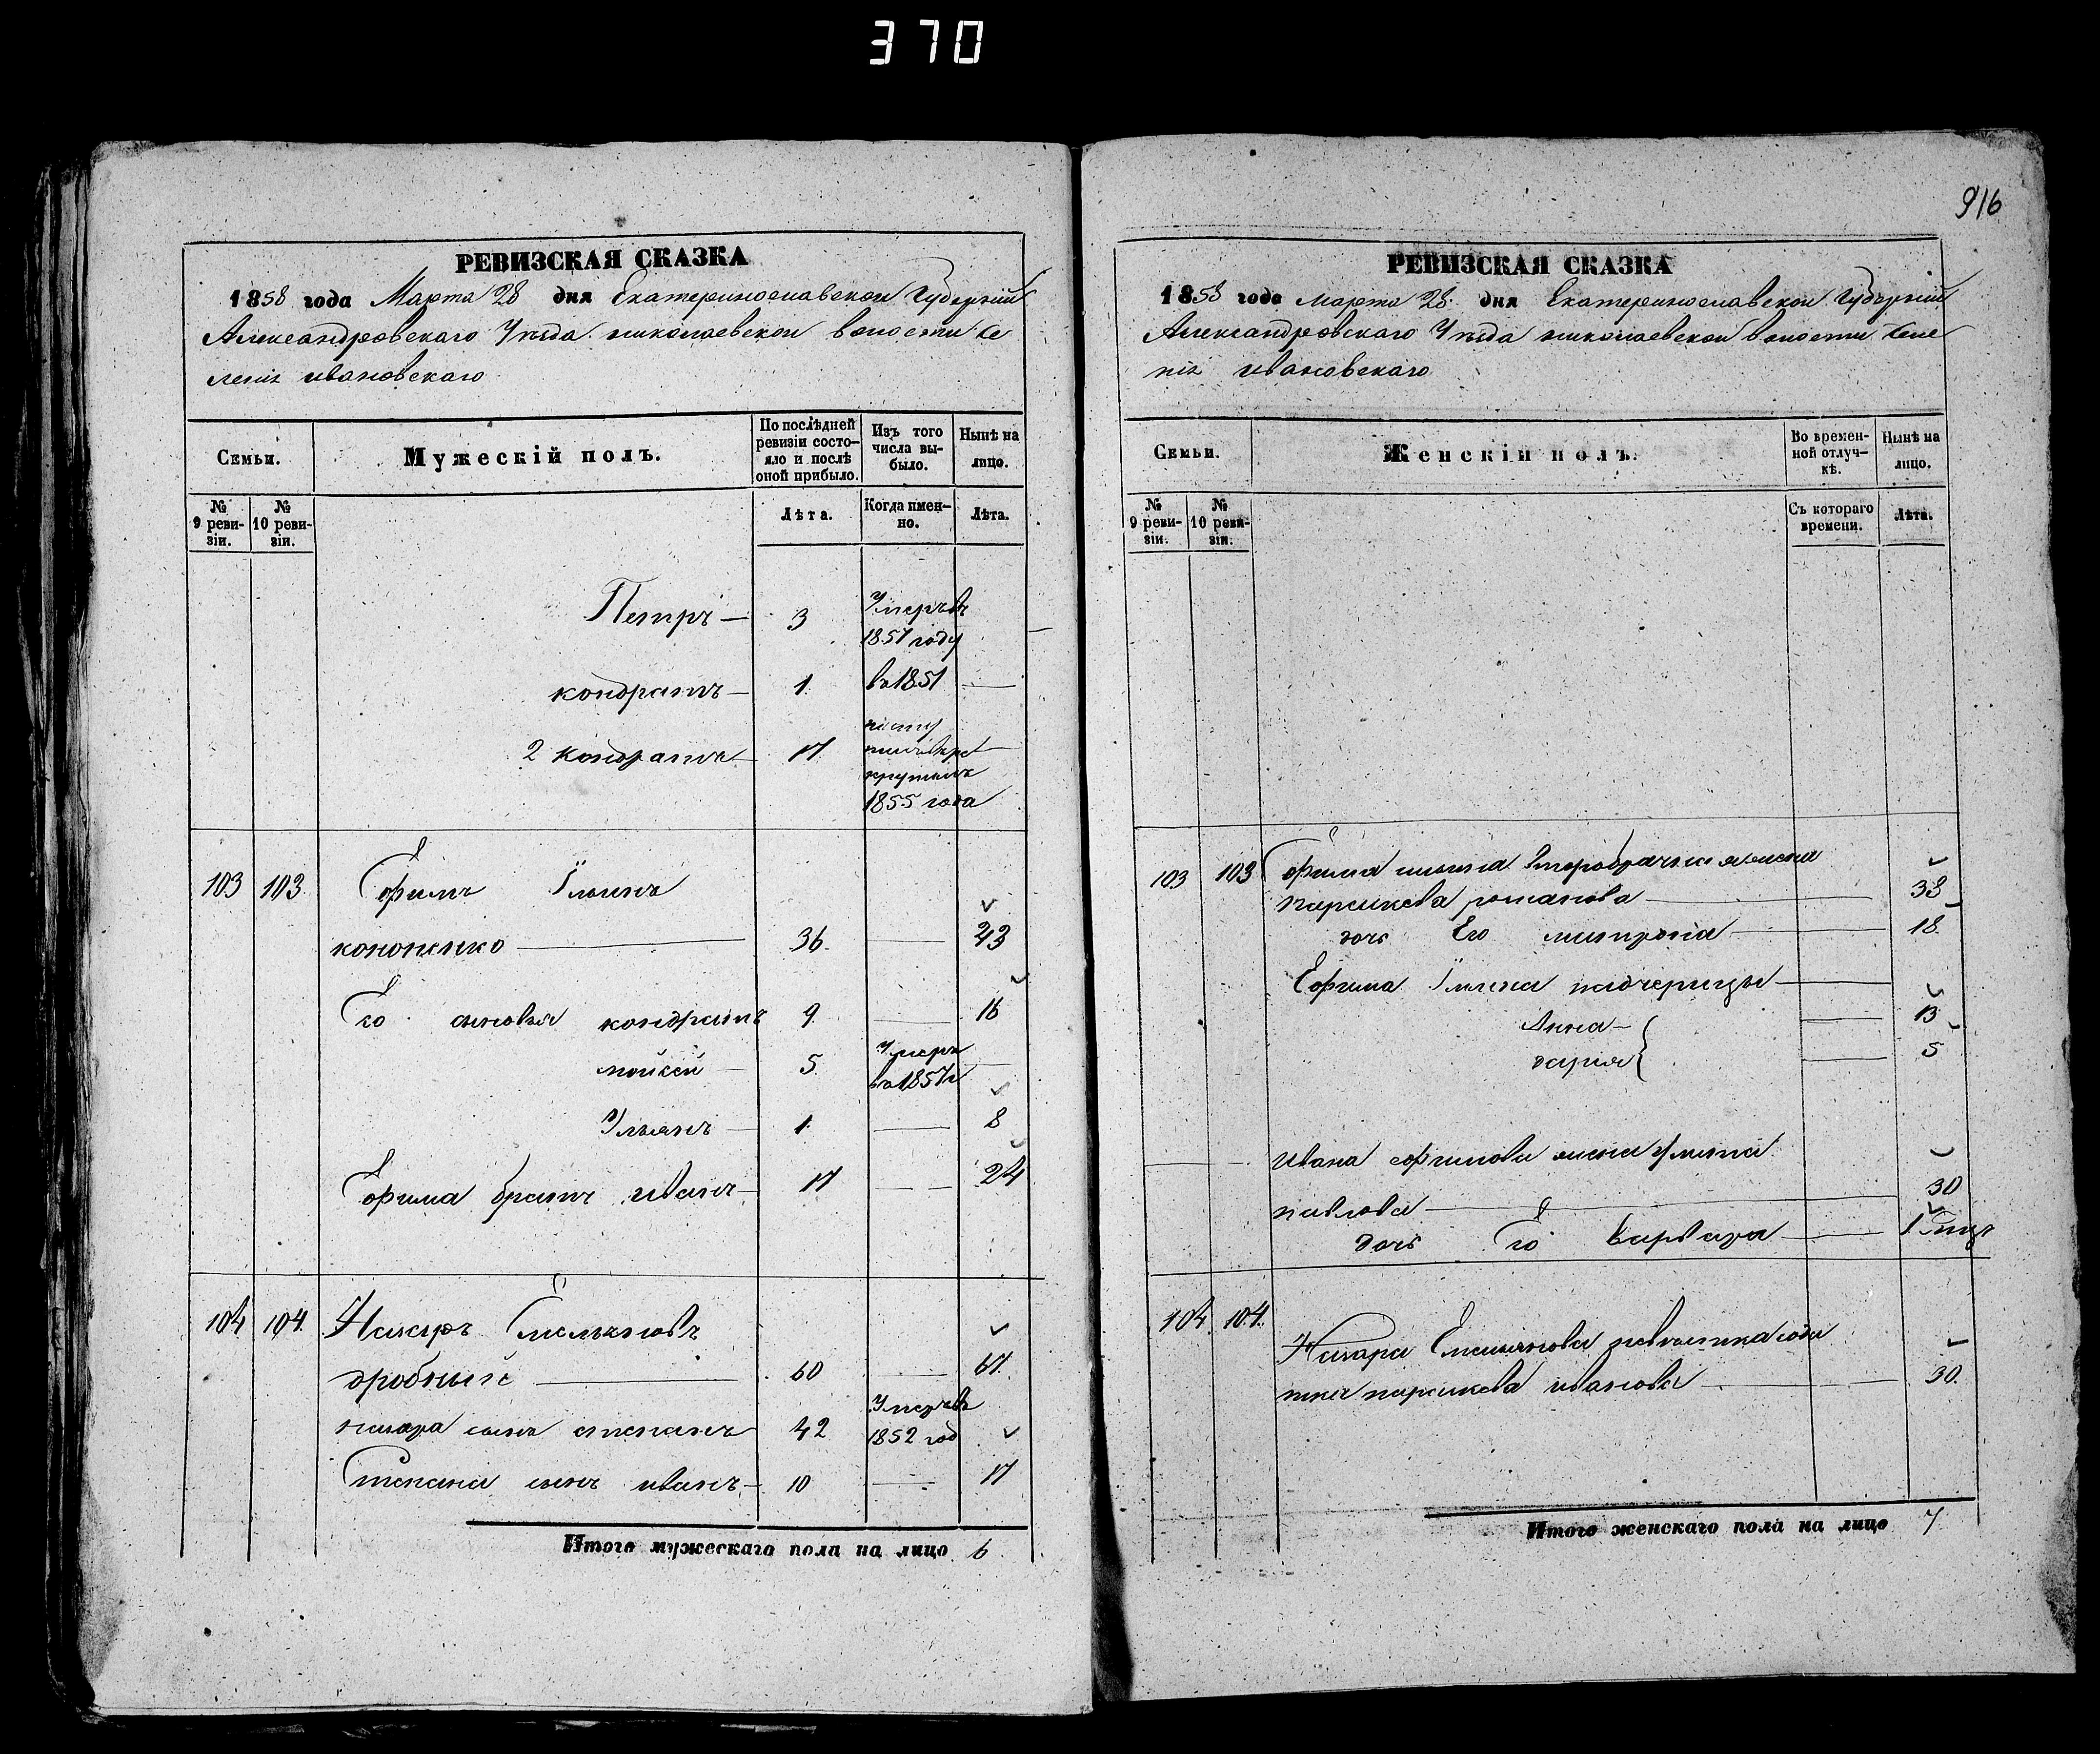 370
РЕВИЗСКАЯ СКАЗКА
1858 года Марта 28 дня Екатеринославской Губерніи
Александровскаго Уѣзда николаевской волости Се
ленія ивановскаго
Семьи.
Мужескій полъ.
По послѣдней ревизіи состояло и послѣ оной прибыло.
Изъ того числа выбыло.
Нынѣ на лицо.
№ 9 ревизіи.
№ 10 ревизіи.
Лѣта.
Когда именно.
Лѣта.
Петръ — 3 Умеръ въ
1851 году —
кондратъ — 1 въ 1851 —
2 Кондратъ — 17
1855 года
103 103. Ефимъ Ільинъ
кононенко — 36. — 43
Его сыновья кондратъ 9 — 16
мойсей — 5. Умеръ —
въ 1857 г
Ульянъ — 1. — 8
Ефима братъ иванъ — 17 — 24
104 104. Назаръ Емельяновъ
дробный — 60 — 67.
назара сынъ степанъ 42 Умеръ въ
1852 год
Степана сынъ иванъ — 10 — 17
Итого мужескаго пола на лицо 6.
916
РЕВИЗСКАЯ СКАЗКА
1858 года марта 28 дня Екатеринославской Губерніи
Александровскаго Уѣзда николаевской волости Селе
нія ивановскаго
Семьи.
Женскій полъ.
Во временной отлучкѣ.
Нынѣ на лицо.
№ 9 ревизіи.
№ 10 ревизіи.
Съ котораго времени.
Лѣта.
103 103 Ефима ильина второбрачная жена
параскева романова — 38
дочь Его митрона — 18.
Ефима Ільина падчерицы —
Анна — 13
дарія — 5
ивана ефимова жена
павлова — 30
дочь Его варвара — 1
104. 104. Назара Емельянова невѣстка
параскева иванова — 30.
Итого женскаго пола на лицо 7